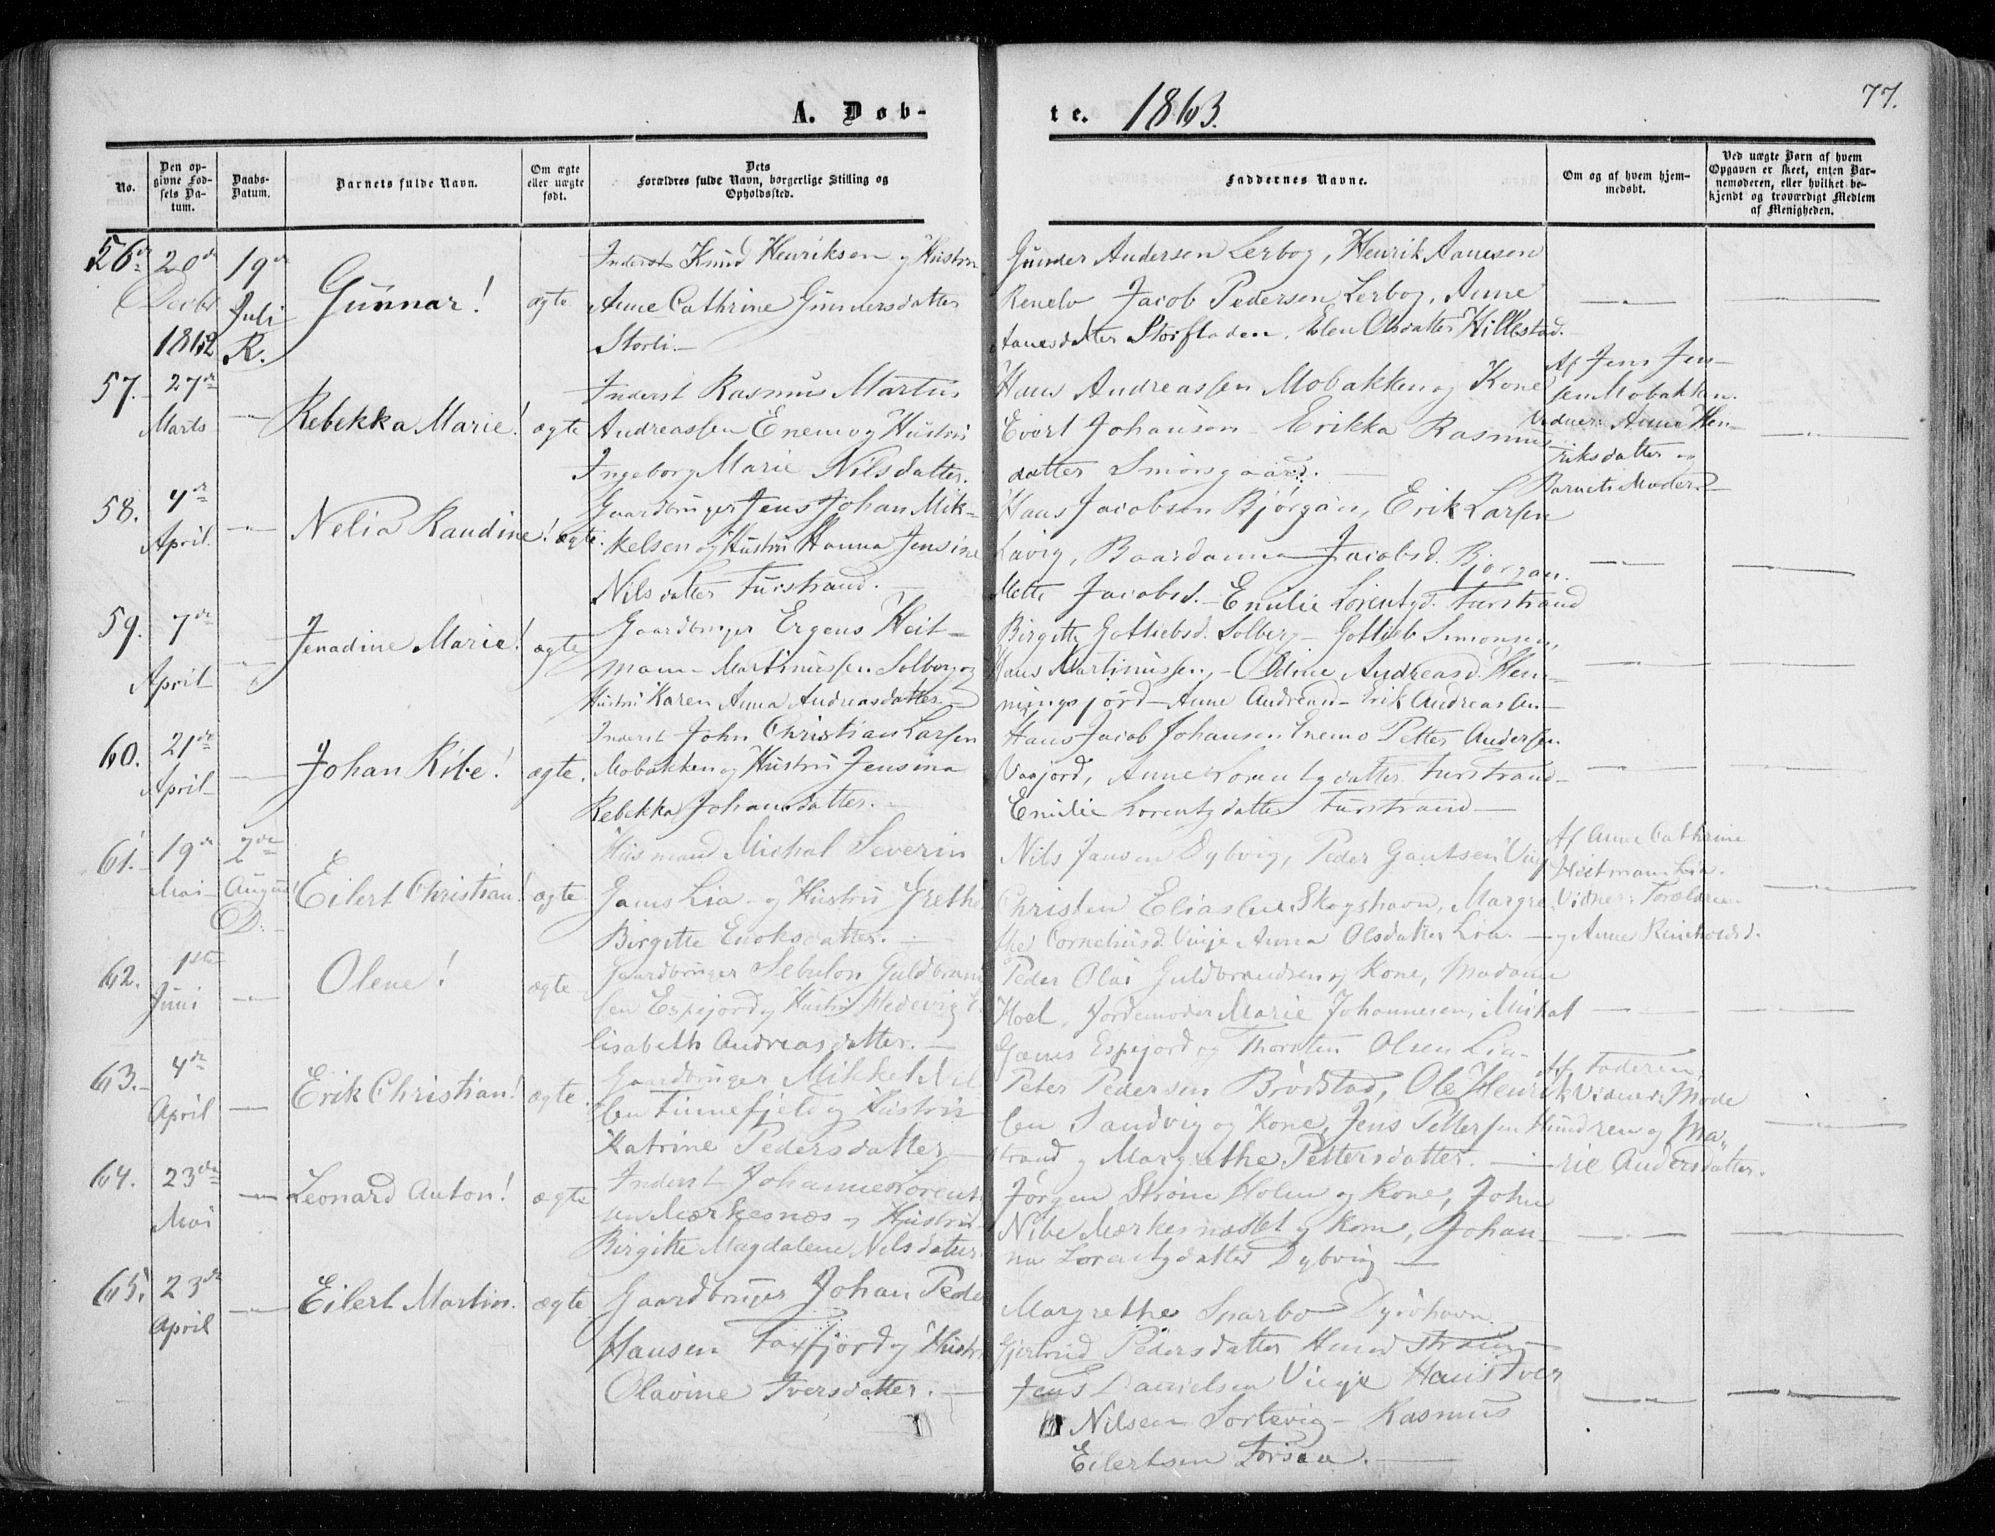 A. Døb-
te. 1863.
77.
No.
Den op-
givne Fød-
sels Da-
tum.
Daabs-
Datum.
Barnets fulde Navn.
Om ægte
eller uægte
født.
Dets
Forældres fulde Navn, borgerlige Stilling og
Opholdssted.
Faddernes Navne.
Om og af hvem hjem-
medøbt.
Ved uægte Børn af hvem
Opgaven er skeet, enten Bar-
nemoderen, eller hvilket be-
kjendt og troværdigt Medlem
af Menigheden.
56
20de
Decbr
1862
19de
Juli
R.
Gunnar!
ægte
Inderst Knud Henriksen og Hustru
Anne Cathrine Gunnersdatter
Storli
Gunder Andersen Lerbog, Henrik Aanesen
Jacob Pedersen Lerbog, Anne
Aanesdatter Storfladen, Elen Olsdatter Hillestad.
57.
27de
Marts
Rebekka Marie!
ægte
Inderst Rasmus Martus
Andreassen Enemo og Hustru
Ingeborg Marie Nilsdatter.
Hans Andreassen Mobakken og Kone
Evert Johansen Erikka Rasmus
datter Smörsgaard.
Af Jens Jen-
sen Mobakken.
Vidner: Anne Hen-
riksdatter og
Barnets Moder
58.
4de
April
Nelia Raudine!
ægte.
Gaardbruger Jens Johan Mik-
kelsen og Hustru Hanna Jensine
Nilsdatter Furstrand.
Hans Jacobsen Bjørgan, Erik Larsen
Lavig, Baardanna Jacobsd. Bjørgan.
Mette Jacobsd. Emilie Lorentzd. Furstrand
59.
7de
April
Jenadine Marie!
ægte
Gaardbruger Ergens Heit-
mann Martinussen Solberg og
Hustru Karen Anna Andreasdatter.
Birgitte Gotliebsd. Solberg Gotlieb Simonsen,
Hans Martinussen, Odine Andreasd. Hen-
ningsfjord Anne Andreasd Erik Andreassen
60.
21de
April
Johan Ribe!
ægte.
Inderst John Christian Larsen
Mobakken og Hustru Jensina
Rebekka Johansdatter.
Hans Jacob Johansen Enemo Petter Andersen
Vasjord, Anne Lorentzdatter Furstrand
Emilie Lorentzdatter Furstrand
61.
19de
Mai
2den
August
D.
Eilert Christian!
ægte
Husmand Michal Severin
Gams Lia og Hustru Grethe
Birgitte Enoksdatter.
Nils Jansen Dybvig, Peder Gantsen Vinje
Christen Eliassen Skogshavn, Margre
the Corneliusd. Vinje Anna Olsdatter Lia.
Af Anne Cathrine
Heitman Lia.
Vidner: Forældrene
og Anne Reinholdsd.
62.
1ste
Juni
Olene!
ægte
Gaardbruger Sebulon Guldbrand
sen Espejord og Hustru Hedevig E
lisabeth Andreasdatter.
Peder Olai Guldbrandsen og Kone, Madame
Hoel, Jordemoder Marie Johannesen, Mikal
Gams Espejord og Thorsten Olsen Lia
63.
4de
April
Erik Christian!
ægte.
Gaardbruger Mikkel Nil
sen Finnefjeld og Hustru
Katrine Pedersdatter
Peter Pedersen Brødstad, Ole Henrik
sen Sandvig og Kone, Jens Pettersen Hund
strand og Margrethe Pettersdatter.
Af Faderen,
Vidner: Mode
ren og Ma
rie Andersdatter.
64.
23de
Mai
Leonard Anton!
ægte
Inderst Johannes Lorent
sen Mærkesnæs og Hustru
Birgitte Magdalene Nilsdatter
Jørgen Strøm Holm og Kone, John
Nibe Mærkesnæsset og Kone, Johan
na Lorentzdatter Dybvig
65.
23de
April
Eilert Martin.
ægte
Gaardbruger Johan Peder
Hansen Faxfjord og Hustru
Olavine Iversdatter.
Margrethe Sparbo Dyrøhavn.
Gjertrud Pedersdatter Hundstrand
Jens Danielsen Vinje Hans Iver
Nilsen Sortevig Rasmus
Eilertsen Forsaa.